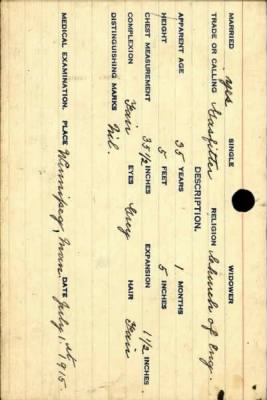 MARRIED yes SINGLE WIDOWER
TRADE OR CALLING Gasfitter RELIGION Church of Eng.
DESCRIPTION.
APPARENT AGE 35 YEARS 1 MONTHS
HEIGHT 5 FEET 5 INCHES
CHEST MEASUREMENT 35 1/2 INCHES EXPANSION 1 1/2 INCHES.
COMPLEXION Fair EYES Grey HAIR Fair
DISTINGUISHING MARKS Nil.
MEDICAL EXAMINATION. PLACE Winnipeg, Man DATE July 1st 1915.